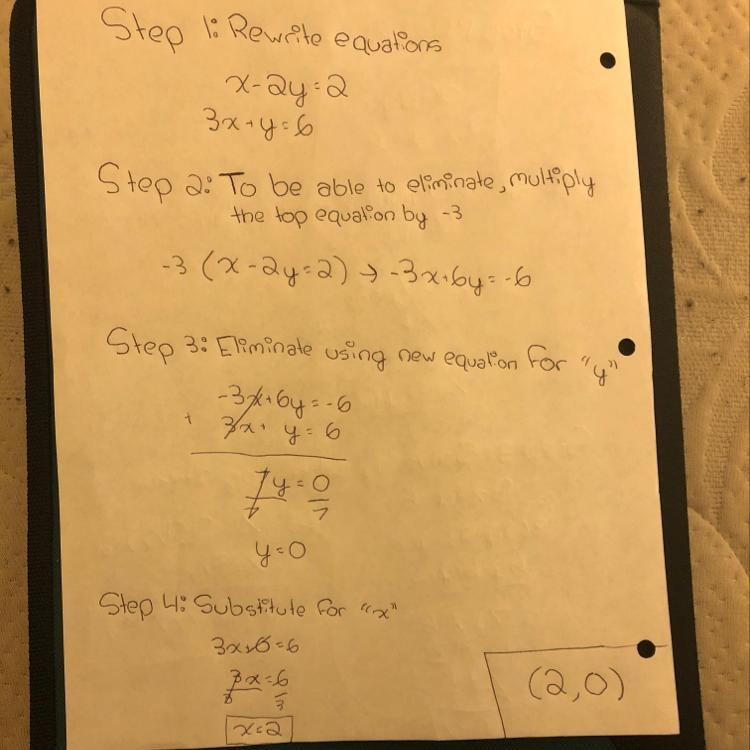 Step 1: Rewrite equations
x-2y=2
3x+y=6
Step 2: To be able to eliminate, multiply
the top equation by -3
-3 (x-2y=2) → -3x+6y=-6
Step 3: Eliminate using new equation for "y"
-3x+6y=-6
+ 3x+ y=6
7y=0
7 7
y=0
Step 4: Substitute for "x"
3x+0=6
3x=6
3 3
x=2
(2,0)